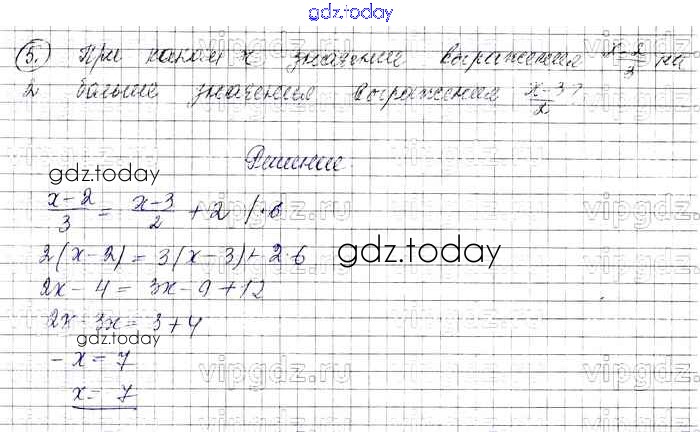 gdz.today
5. При каком x значение выражения (x-2)/3 на
2 больше значения выражения (x-3)/2?
Решение.
gdz.today
(x-2)/3 = (x-3)/2 + 2 /·6
2(x-2) = 3(x-3) + 2·6
gdz.today
2x - 4 = 3x - 9 + 12
2x - 3x = 3 + 4
gdz.today
- x = 7
x = - 7
vipgdz.ru
vipgdz.ru
vipgdz.ru
vipgdz.ru